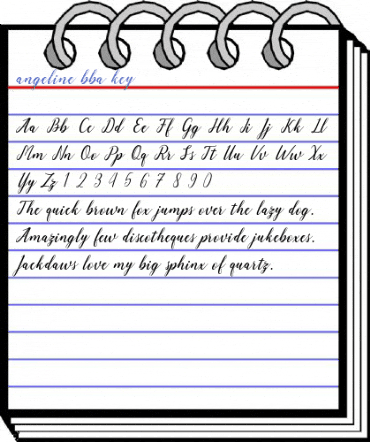 angeline bba key
Aa Bb Cc Dd Ee Ff Gg Hh Ii Jj Kk Ll
Mm Nn Oo Pp Qq Rr Ss Tt Uu Vv Ww Xx
Yy Zz 1 2 3 4 5 6 7 8 9 0
The quick brown fox jumps over the lazy dog.
Amazingly few discotheques provide jukeboxes.
Jackdaws love my big sphinx of quartz.